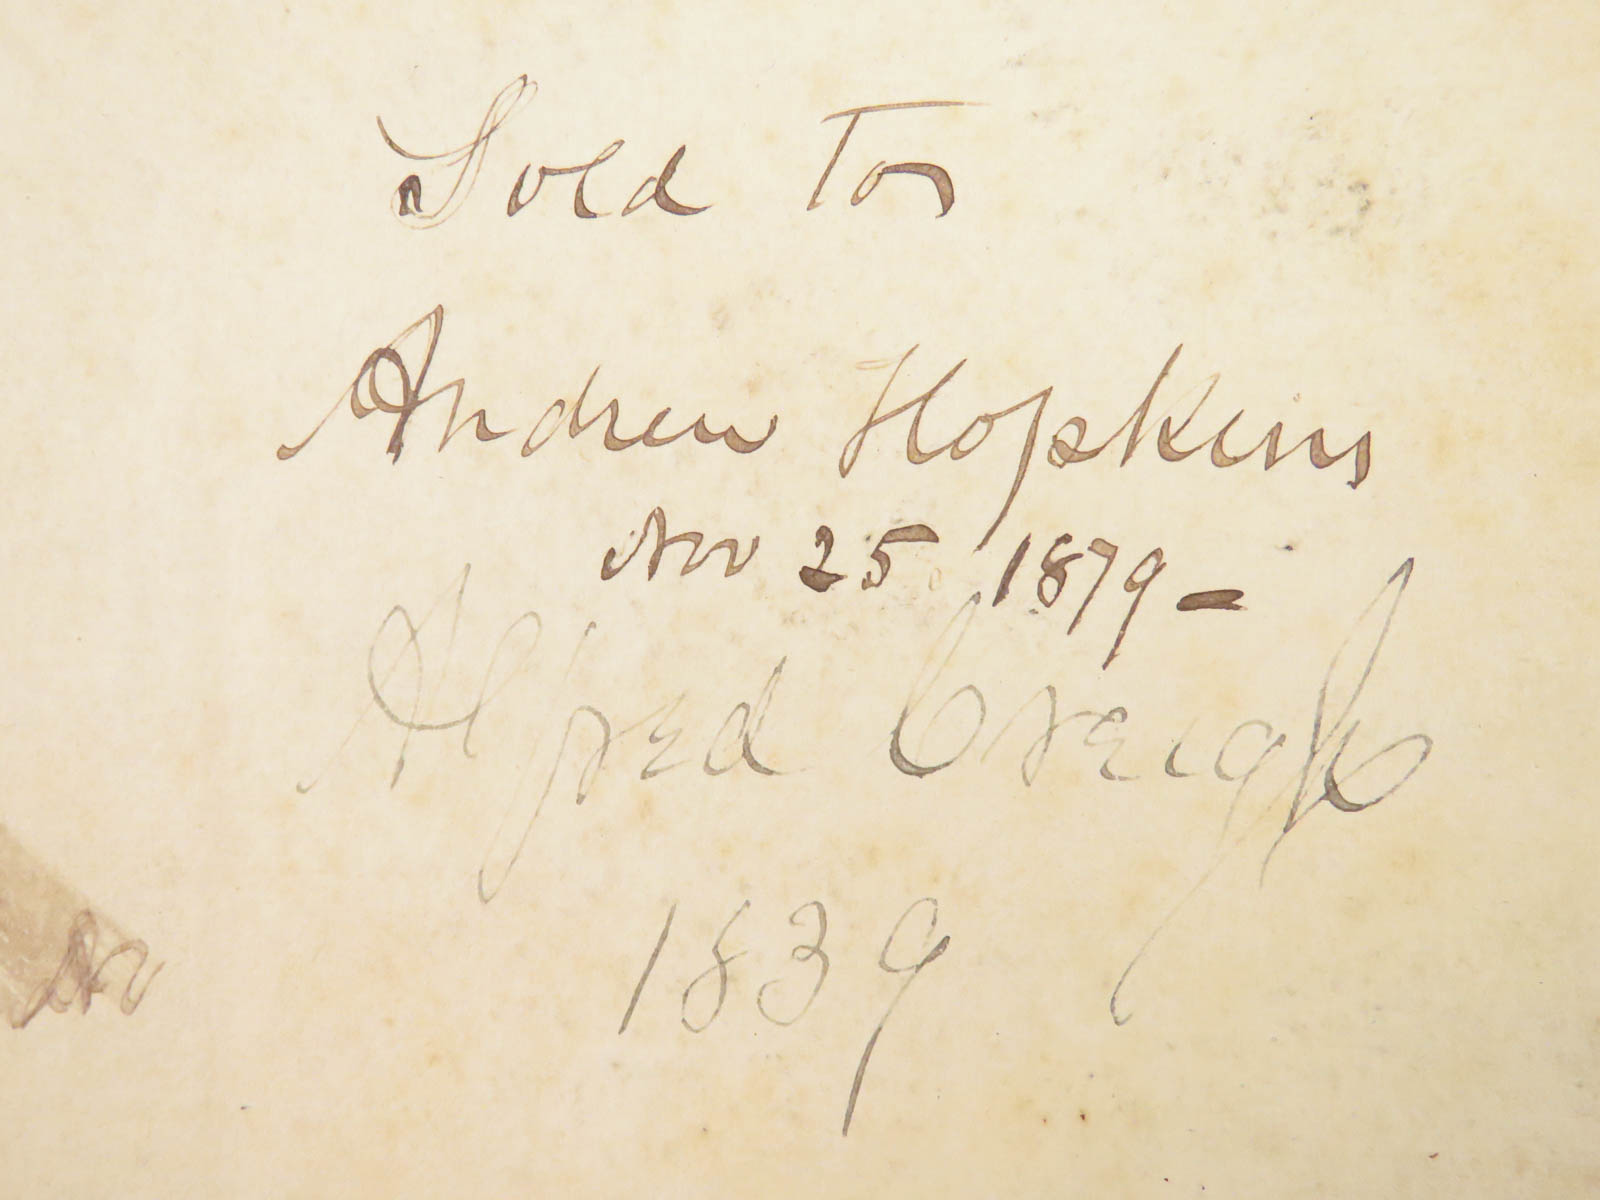 Sold To
Andrew Hopkins
Nov 25 1879 -
Alfred Creigh
1839